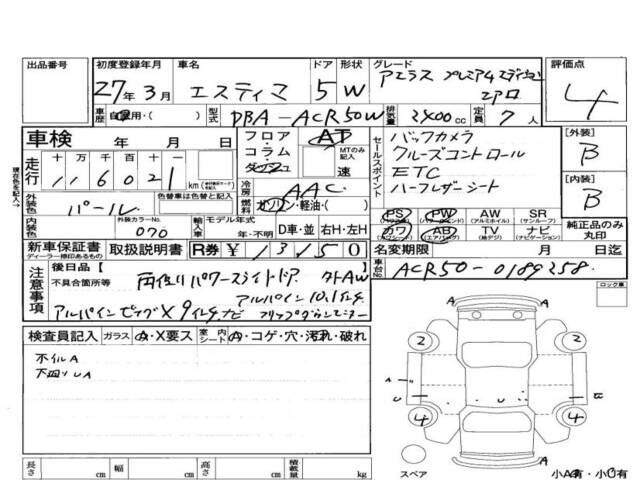 出品番号 初度登録年月 車名 ドア 形状 グレード 評価点
27年3月 エスティマ 5 W アエラス プレミアムエディション 4
車歴 自家用・( ) 型式 DBA-ACR50W 排気量 2400cc 定員 7人
車検 年 月 日 フロア・コラム・ダッシュ AT MTのみ記入 速
走行 十 万 千 百 十 一
116021 km
冷房 AAC
燃料 ガソリン・軽油・( )
セールスポイント
バックカメラ
クルーズコントロール
ETC
ハーフレザーシート
[外装] B
[内装] B
外装色 パール 色替車は色替と記入
内装色 外装カラーNo. 070
輸入車 モデル年式 年・不明 D車・並 右H・左H
PS PW AW SR
カワ AB TV ナビ
純正品のみ丸印
新車保証書 取扱説明書 R券 ¥13150
ディーラー捺印あるもの
名変期限 月 日迄
車台No. ACR50-0189258
注意事項 後日品/ 不具合箇所等
両側パワースライドドア 外AW
アルパイン10.1インチ
アルパインビッグX 9インチナビ フリップダウンモニター
ロック車
検査員記入 ガラス A・X要ス 室内シート A・コゲ・穴・汚れ・破れ
ホイルA
下回りUA
A
2 2
A U U U
4 4
A
スペア 小A有・小U有
長さ cm 幅 cm 高さ cm 積載量 kg